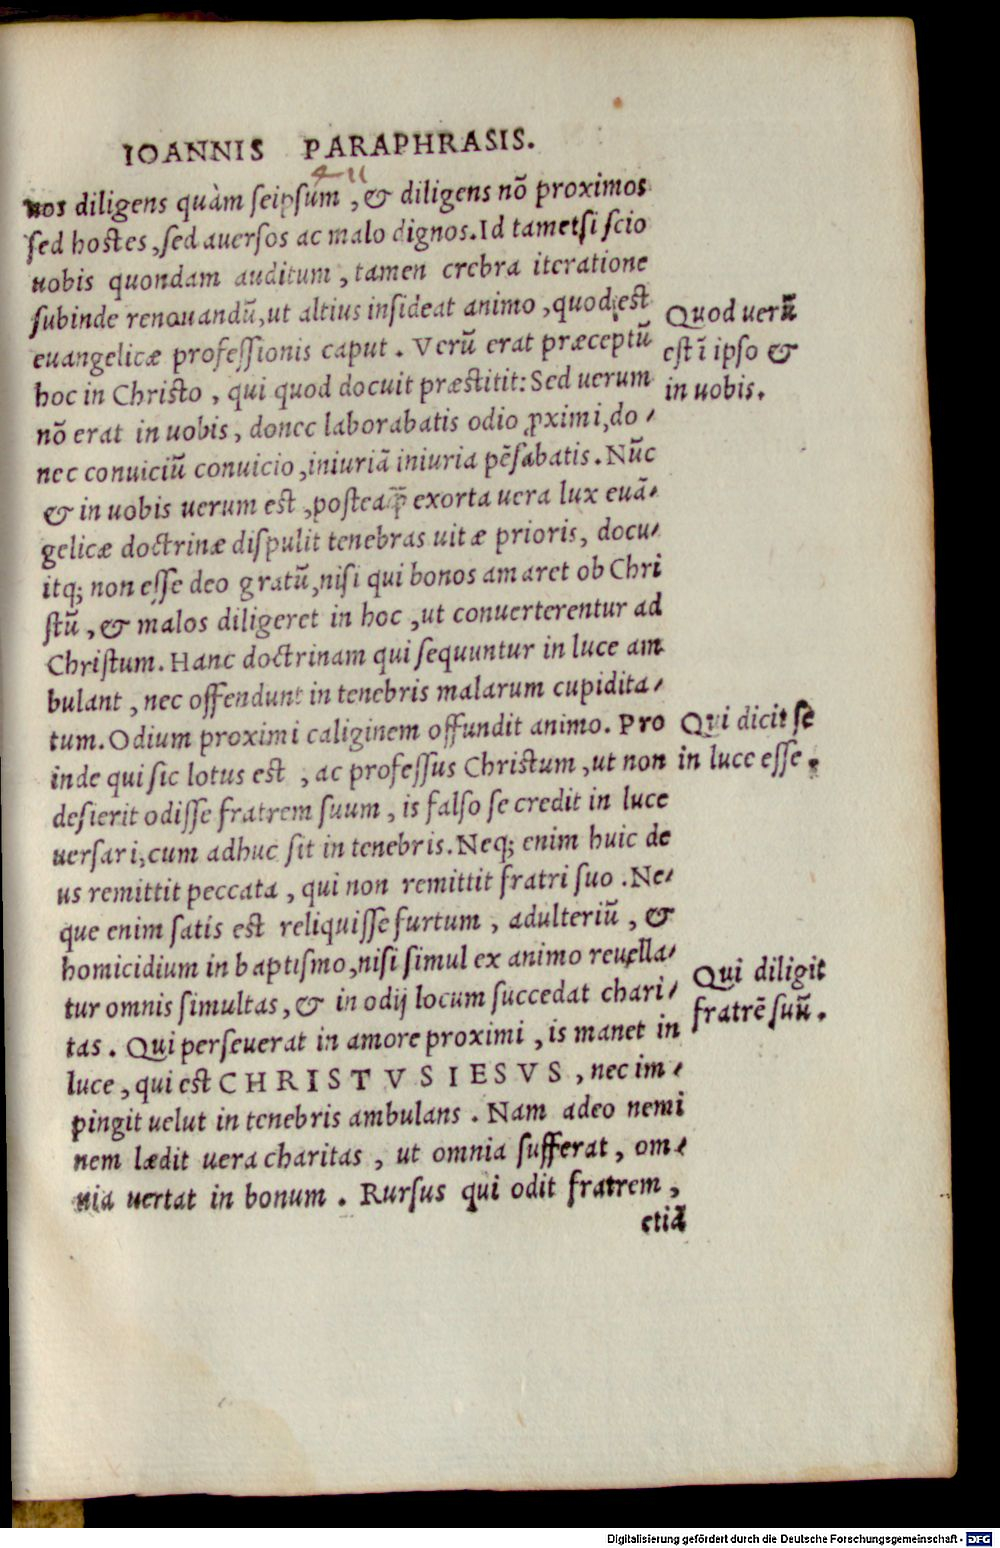 IOANNIS PARAPHRASIS.
nos diligens quàm seipsum, & diligens nō proximos
sed hostes, sed auersos ac malo dignos. Id tametsi scio
uobis quondam auditum, tamen crebra iteratione
subinde renouandū, ut altius insideat animo, quod est
euangelicæ professionis caput. Verū erat præceptū
hoc in Christo, qui quod docuit præstitit: Sed uerum
nō erat in uobis, donec laborabatis odio ꝓximi, do⸗
nec conuiciū conuicio, iniuriā iniuria pēsabatis. Nūc
& in uobis uerum est, posteaꝙ̃ exorta uera lux euā⸗
gelicæ doctrinæ dispulit tenebras uitæ prioris, docu⸗
itq; non esse deo gratū, nisi qui bonos amaret ob Chri
stū, & malos diligeret in hoc, ut conuerterentur ad
Christum. Hanc doctrinam qui sequuntur in luce am
bulant, nec offendunt in tenebris malarum cupidita⸗
tum. Odium proximi caliginem offundit animo. Pro
inde qui sic lotus est, ac professus Christum, ut non
desierit odisse fratrem suum, is falso se credit in luce
uersari, cum adhuc sit in tenebris. Neq; enim huic de
us remittit peccata, qui non remittit fratri suo. Ne⸗
que enim satis est reliquisse furtum, adulteriū, &
homicidium in baptismo, nisi simul ex animo reuella⸗
tur omnis simultas, & in odij locum succedat chari⸗
tas. Qui perseuerat in amore proximi, is manet in
luce, qui est CHRISTVS IESVS, nec im⸗
pingit uelut in tenebris ambulans. Nam adeo nemi
nem lædit uera charitas, ut omnia sufferat, om⸗
nia uertat in bonum. Rursus qui odit fratrem,
etiā
Quod uerū
est ī ipso &
in uobis.
Qui dicit se
in luce esse.
Qui diligit
fratrē suū.
Digitalisierung gefördert durch die Deutsche Forschungsgemeinschaft - DFG